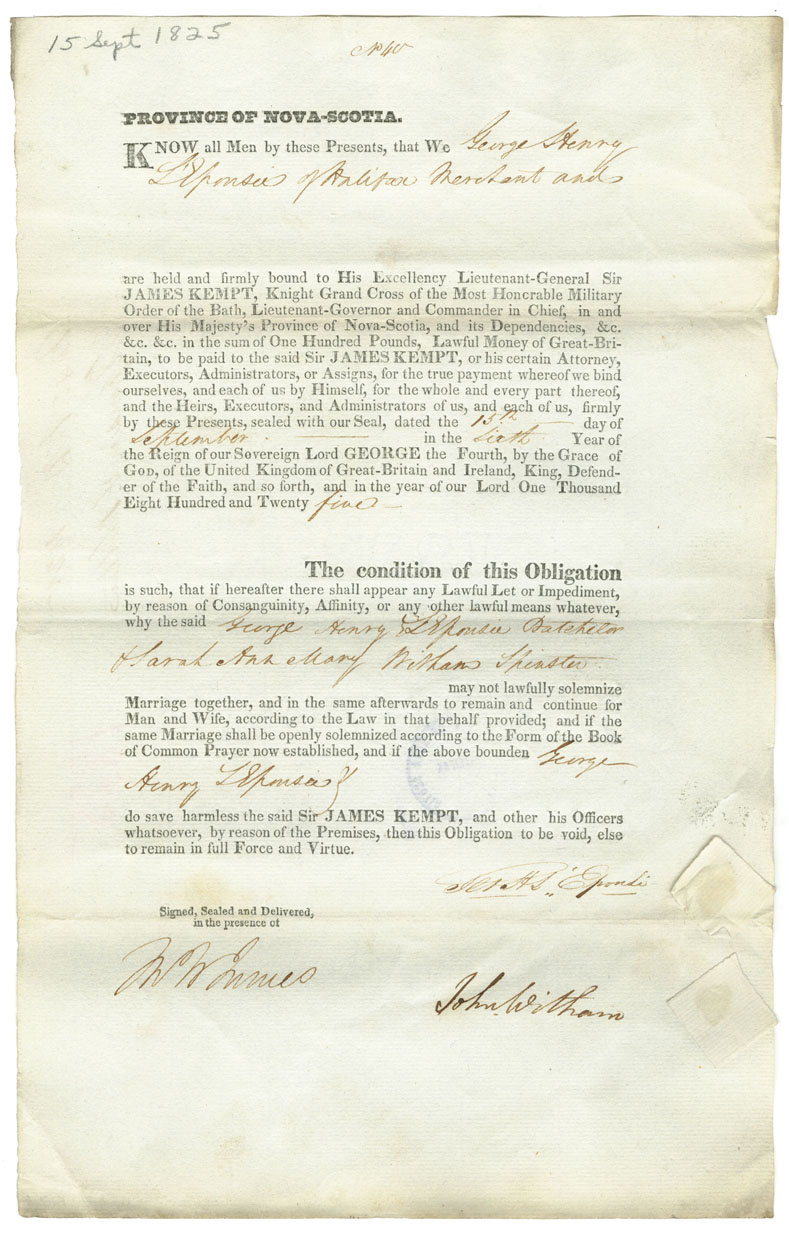 15 Sept 1825
No 40
PROVINCE OF NOVA-SCOTIA.
KNOW all Men by these Presents, that We George Henry
L'Eponsie of Halifax Merchant and
are held and firmly bound to His Excellency Lieutenant-General Sir
JAMES KEMPT, Knight Grand Cross of the Most Honorable Military
Order of the Bath, Lieutenant-Governor and Commander in Chief, in and
over His Majesty's Province of Nova-Scotia, and its Dependencies, &c.
&c. &c. in the sum of One Hundred Pounds, Lawful Money of Great-Bri-
tain, to be paid to the said Sir JAMES KEMPT, or his certain Attorney,
Executors, Administrators, or Assigns, for the true payment whereof we bind
ourselves, and each of us by Himself, for the whole and every part thereof,
and the Heirs, Executors, and Administrators of us, and each of us, firmly
by these Presents, sealed with our Seal, dated the 15th day of
September in the sixth Year of
the Reign of our Sovereign Lord GEORGE the Fourth, by the Grace of
GOD, of the United Kingdom of Great-Britain and Ireland, King, Defend-
er of the Faith, and so forth, and in the year of our Lord One Thousand
Eight Hundred and Twenty five
The condition of this Obligation
is such, that if hereafter there shall appear any Lawful Let or Impediment,
by reason of Consanguinity, Affinity, or any other lawful means whatever,
why the said George Henry L'Eponsie Batchelor
& Sarah Ann Mary Witham Spinster
may not lawfully solemnize
Marriage together, and in the same afterwards to remain and continue for
Man and Wife, according to the Law in that behalf provided; and if the
same Marriage shall be openly solemnized according to the Form of the Book
of Common Prayer now established, and if the above bounden George
Henry L'Eponsie
do save harmless the said Sir JAMES KEMPT, and other his Officers
whatsoever, by reason of the Premises, then this Obligation to be void, else
to remain in full Force and Virtue.
Signed, Sealed and Delivered,
in the presence of
John Witham